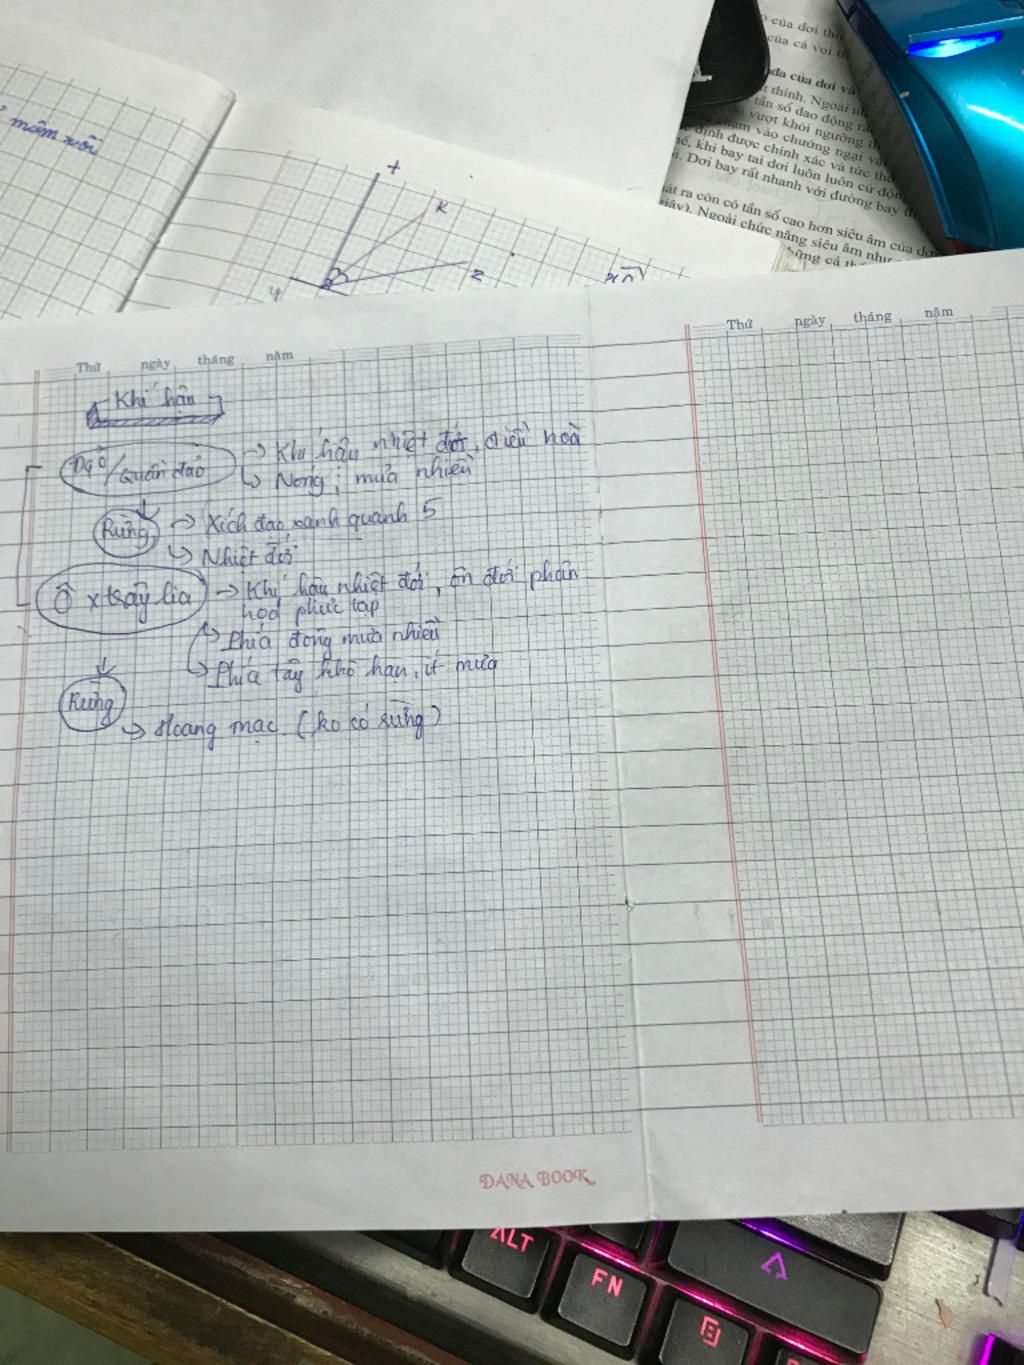 mâm xôi
x
K
z
y
của cá voi
của dơi và
thính. Ngoài
tần số dao động
vượt khỏi ngưỡng
chạm vào chướng ngại
định được chính xác và tức
khi bay tai dơi luôn luôn cử động
Dơi bay rất nhanh với đường bay
ra còn có tần số cao hơn siêu âm của
Ngoài chức năng siêu âm như
những cá
Thứ ngày tháng năm
Thứ ngày tháng năm
Khí hậu
/Quần đảo
→ Khí hậu nhiệt đới, điều hoà
↳ Nóng, mưa nhiều
Rừng
→ Xích đạo xanh quanh 5
↳ Nhiệt đới
Ô xtrây lia
→ Khí hậu nhiệt đới, ôn đới phân
hoá phức tạp
Phía đông mưa nhiều
↳ Phía tây khô hạn, ít mưa
Rừng
↳ Hoang mạc (ko có rừng)
DANA BOOK
ALT
FN